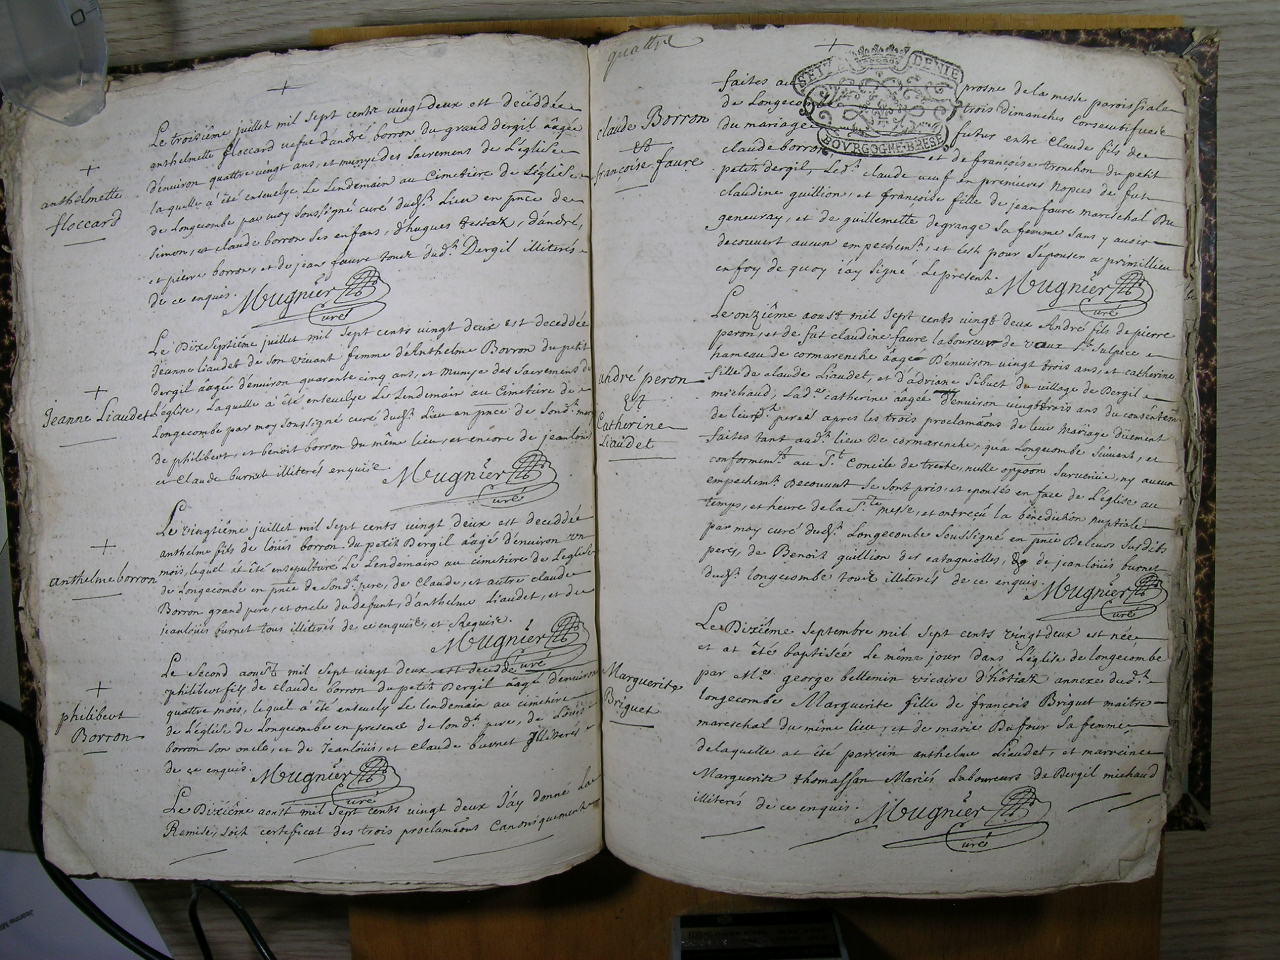 Le troisiême juillet mil sept cents vingt deux est decédée
anthelmette floccard vefue d'andré borron du grand dergil âagée
d'enuiron quattre vingt ans, et munye des Sacrement de L'église
laquelle a été enseuelye Le Lendemain au Cimetiêre de L'église
de Longecombe par moy soussigné curé dud.t Lieu en pñce de
simon, et claude borron ses enfans, d'hugues d'andré,
et pierre borron, et de jean faure tous dud.t Dergil illiterés
de ce enquis. Mugnier
curé
anthelmette
floccard
Le Dixseptiême juillet mil sept cents vingt deux est deceddée
Jeanne Liaudet de son viuant femme d'Anthelme Borron du petit
dergil âagée d'enuiron quarente cinq ans, et Munye des Sacremens de
L'église, Laquelle a été enseuelye Le Lendemain au Cimetiêre de
Longecombe par moy soussigné curé dud.t Lieu en pñce de Sond.t mary
de philibert, et benoit borron du même lieu, et encore de jean loüis
et Claude burnet illiterés enquis. Mugnier
curé
Jeanne Liaudet
Le vingtiême juillet mil sept cents vingt deux est deceddé
anthelme fils de loüis borron du petit Dergil âagé d'enuiron un
mois, lequel at été ensepulturé Le Lendemain au cimetiêre de L'eglise
de Longecombe en pñce de sond.t pere, de Claude, et autre claude
Borron grand pere, et oncle du defunt, d'anthelme Liaudet, et de
jean loüis burnet tous illiterés de ce enquis, et Requise.
Mugnier
curé
anthelme borron
Le Second aoust mil sept vingt deux est deceddé
philibert fils de claude borron du petit Bergil âagé d'enuiron
quattre mois, lequel a été enseuely Le lendemain au cimetiêre
de L'église de Longecombe en presence de sond.t pere, de Loüis
borron son oncle, et de Jean loüis, et Claude burnet Illiterés
de ce enquis. Mugnier
curé
philibert
Borron
Le Dixiême aoust mil sept cents vingt deux J'ay donné La
Remise, soit certeficat des trois proclamãons Canoniquement
quattre
faites au prosne de la messe paroissiale
de Longecombe trois dimanches consecutifues
du mariage futur entre Claude fils de
claude borron et de françoise tronchon du petit
petit dergil, Led.t claude veuf en premieres nopces de fut
claudine guillion, et françoise fille de jean faure mareschal du
geneuray, et de guillemette degrange sa femme sans y auoir
decouvert aucun empechem.t, et c'est pour s'epouser a primillieu
en foy de quoy j'ay signé Le present. Mugnier
curé
claude Borron
et
françoise faure
SEIZE DENIE
BOURGOGNE·BRESSE
Le onziême aoust mil sept cents vingt deux André fils de pierre
peron, et de fut claudine faure laboureur de vaux S.t Sulpice
hameau de cormarenche âagé D'enuiron vingt trois ans, et catherine
fille de claude Liaudet, et d'adriane Sibuet du village de Bergil
michaud, Lad.e catherine âagée d'enuiron vingt trois ans du consentem.t
de leurd.t peres apres les trois proclamãons de leur Mariage düement
faites tant aud.t lieu de cormarenche, qu'a Longecombe suiuant, et
conformem.t au S.t Concile de trente, nulle oppõon Suruenüe, ny aucun
empechem.t Decouuert Se sont pris, et epousés en face de L'église au
temps, et heure de la S.te messe, et ont reçeu la bénédiction nuptiale
par moy curé dud.t Longecombe soussigné en pñce De leurs Susdits
peres, de Benoit guillion des catagniolles, & de jean loüis burnet
dud.t longecombe tous illiterés de ce enquis. Mugnier
curé
andré peron
et
Catherine
Liaudet
Le Dixiême Septembre mil Sept cents vingt deux est née
et at été baptisée Le même jour dans L'église de longecombe
par M.re george bellemin vicaire d'hôtiaz annexe dud.t
longecombe Marguerite fille de françois Briguet maitre
mareschal du même lieu, et de marie Dufour sa femme,
de laquelle at été parrein anthelme Liaudet, et marreine
Marguerite thomassan Mariés Laboureurs de Bergil michaud
illiterés de ce enquis. Mugnier
curé
Marguerite
Briguet